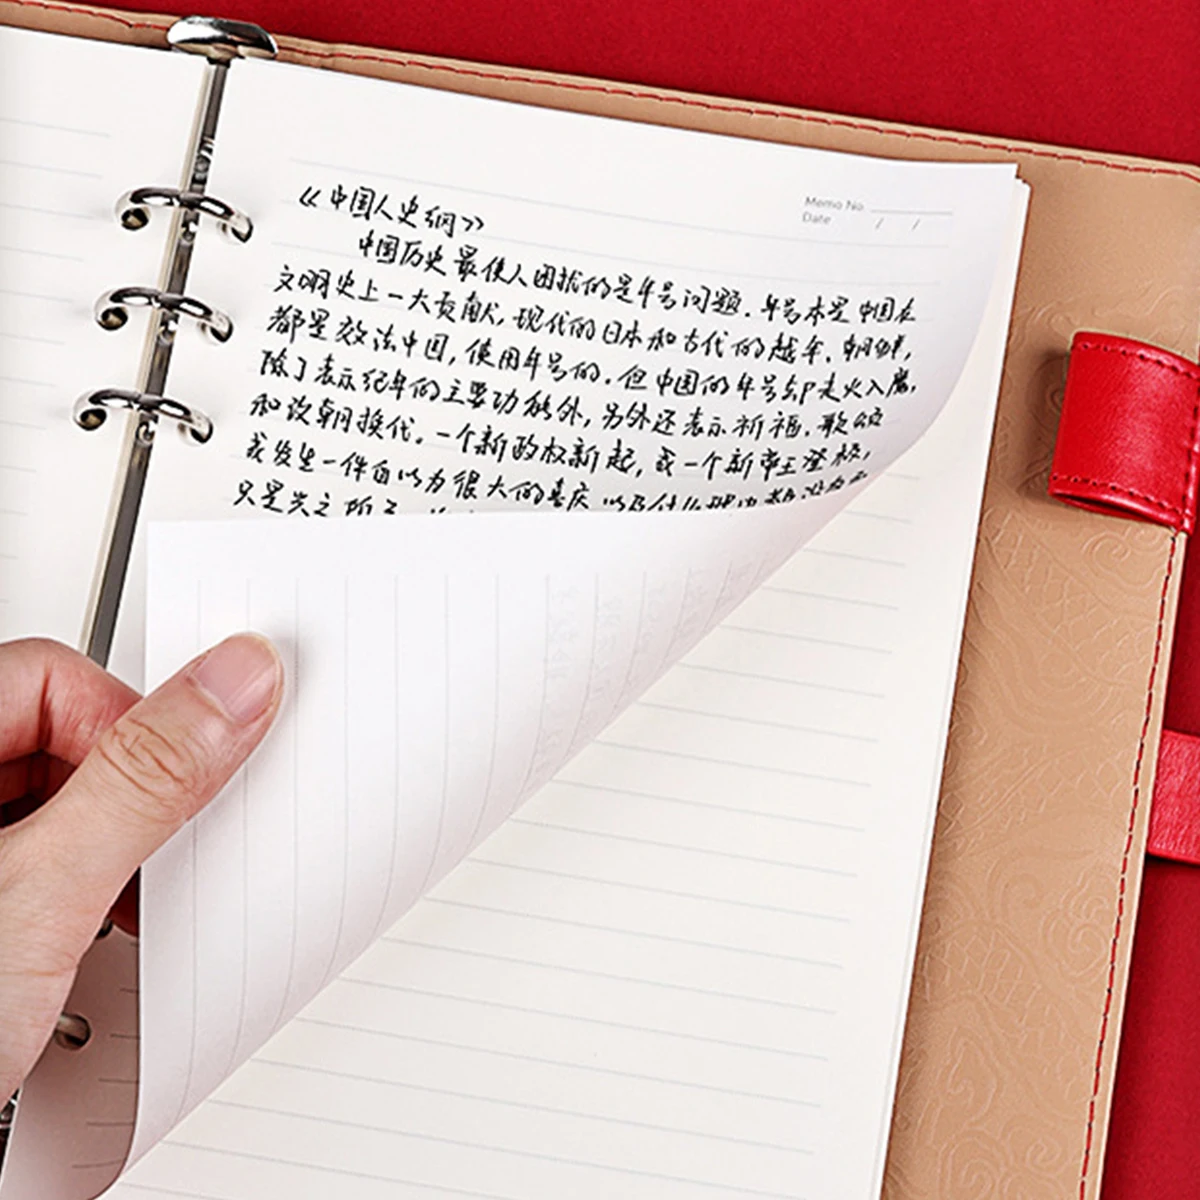 Memo No.
Date / /
《中国人史纲》
中国历史最使人困扰的是年号问题.年号本是中国在
文明史上一大贡献,现代的日本和古代的越年、朝鲜,
都是效法中国,使用年号的.但中国的年号却走火入魔,
除了表示纪年的主要功能外,另外还表示祈福、歌颂
和改朝换代。一个新政权新起,或一个新帝王登极,
或发生一件自以为很大的喜庆
只是兴之所至